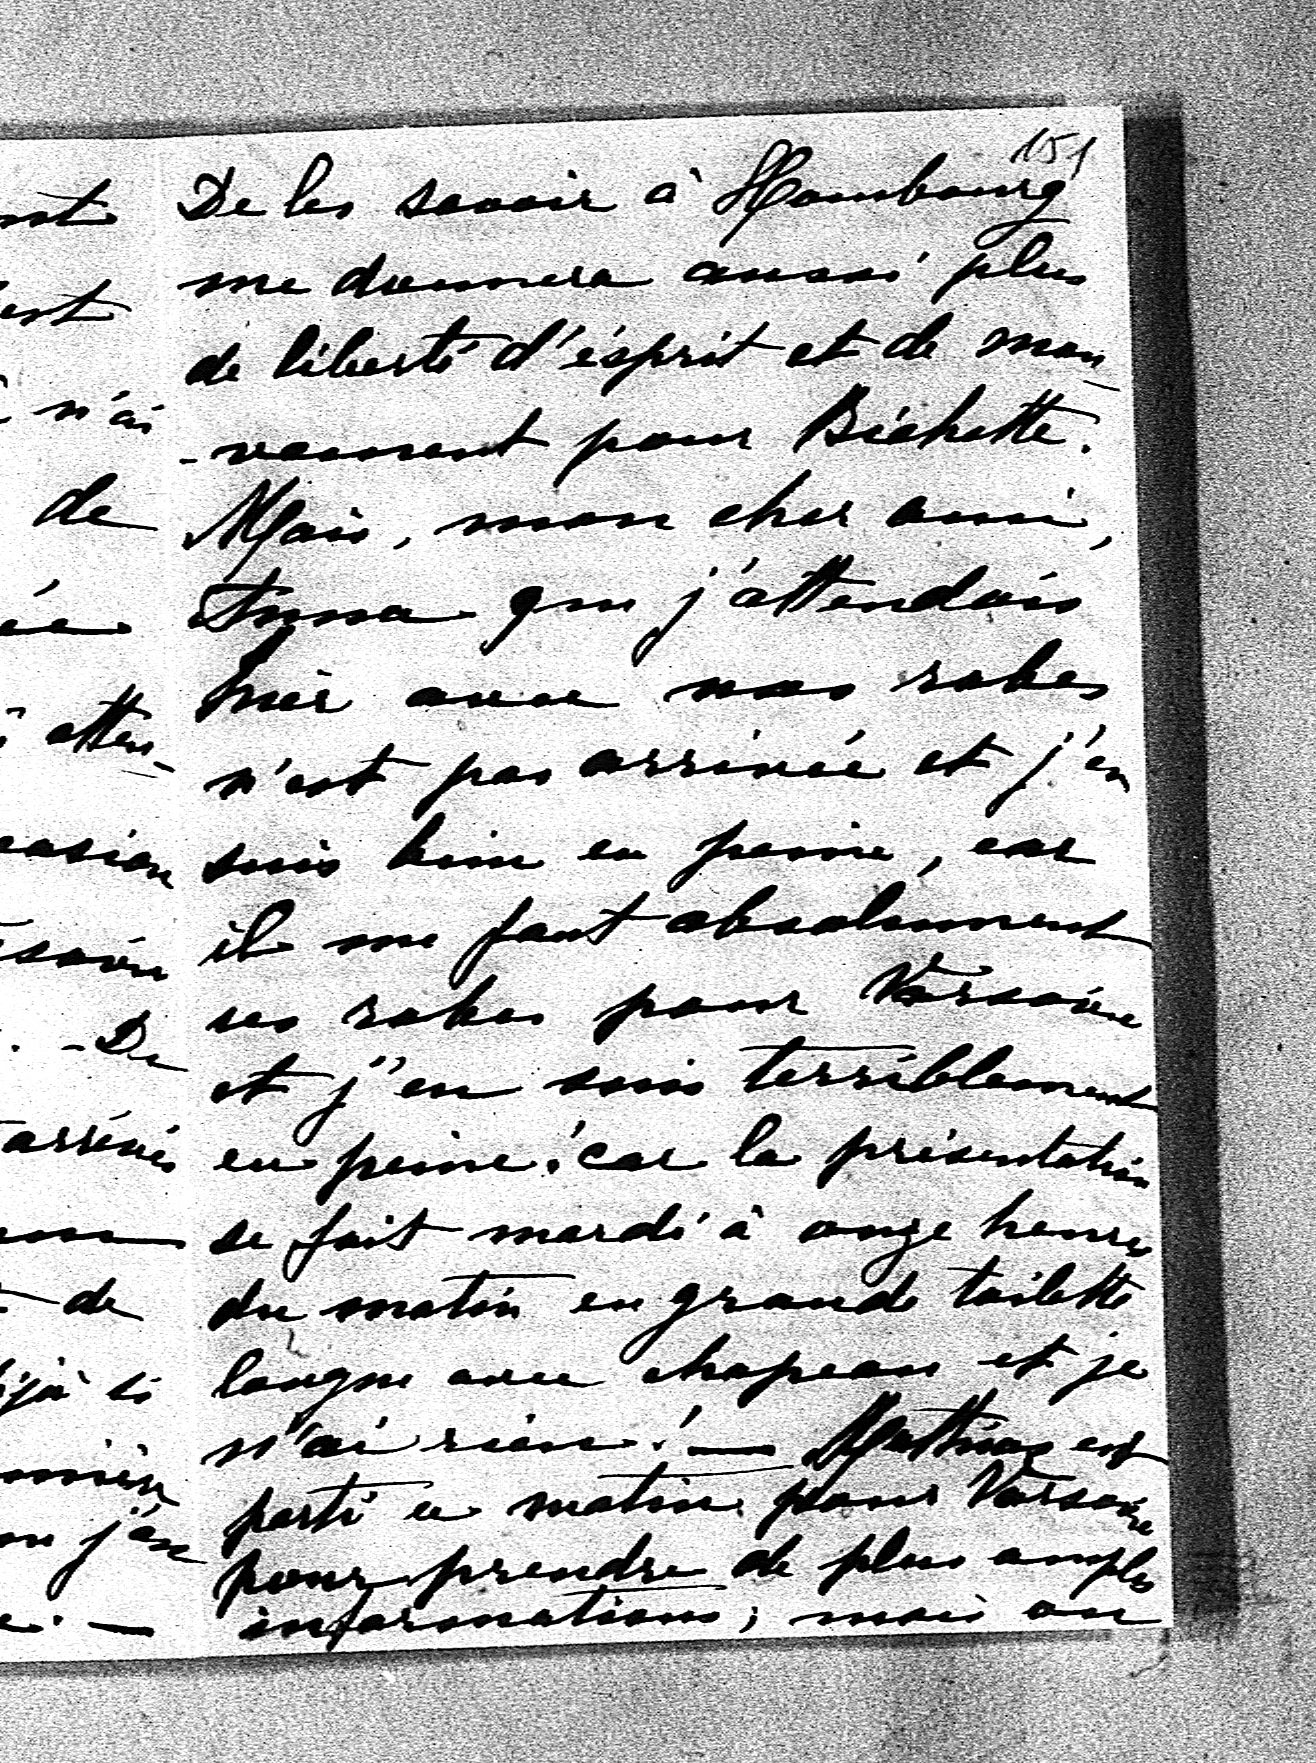 151
De les savoir à Hombourg
me donnera aussi plus
de liberté d'ésprit et de mou
-vement pour Bichette.
Mais, mon cher ami,
Anna que j'attendais
hier avec nos robes
n'est pas arrivée et j'en
suis bien en peine, car
il me faut absolument
ces robes pour Varsovie
et j'en suis terriblement
en peine! car la présentation
se fait mardi à onze heures
du matin en grande toilette
longue avec chapeau et je
n'ai rien! — est
parti ce matin pour Varsovie
pour prendre de plus amples
informations; mais on
n'ai
de
ée
atten-
casion
. - De
arrivés
de
déjà si
j'en
. —